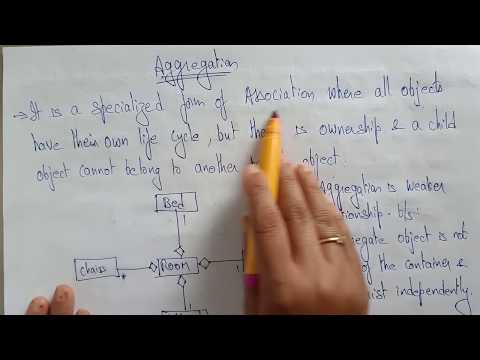 Aggregation
→ It is a specialized form of Association where all objects
have their own life cycle, but the is ownership & a child
object cannot belong to another object.
Aggregation is weaker
b/s:
object is not
of the container &
independently.
Bed
1
chairs
*
Room
1